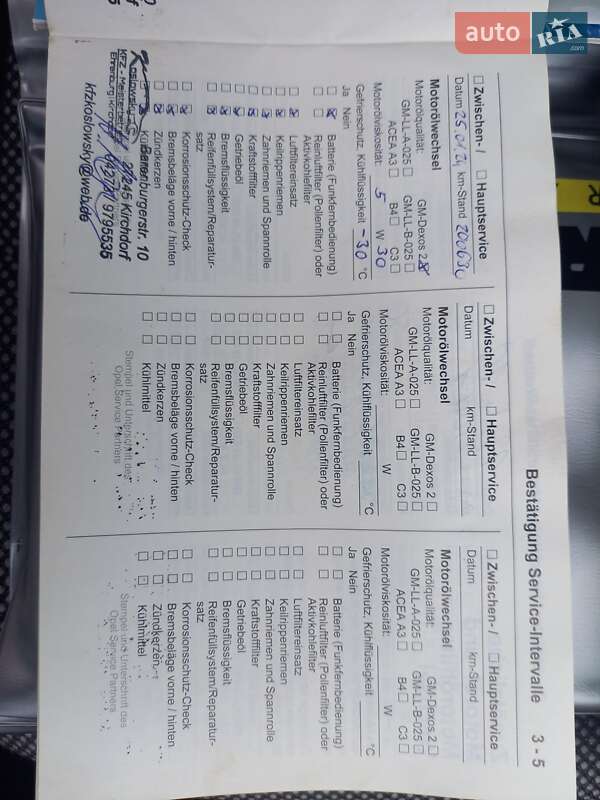 auto RIA.com
Bestätigung Service-Intervalle 3 - 5
☐ Zwischen- / ☐ Hauptservice
Datum 25.01.21 km-Stand 200630
Motorölwechsel
Motorölqualität: GM-Dexos 2 ☒
GM-LL-A-025 ☐ GM-LL-B-025 ☐
ACEA A3 ☐ B4 ☐ C3 ☐
Motorölviskosität: 5 W 30
Gefrierschutz, Kühlflüssigkeit -30 °C
Ja Nein
☐ ☒ Batterie (Funkfernbedienung)
☐ ☐ Reinluftfilter (Pollenfilter) oder
Aktivkohlefilter
☐ ☒ Luftfiltereinsatz
☐ ☒ Keilrippenriemen
☐ ☒ Zahnriemen und Spannrolle
☐ ☒ Kraftstofffilter
☐ ☒ Getriebeöl
☐ ☒ Bremsflüssigkeit
☐ ☒ Reifenfüllsystem/Reparatur-
satz
☐ ☒ Korrosionsschutz-Check
☐ ☒ Bremsbeläge vorne / hinten
☐ ☒ Zündkerzen
Koslowsky
KFZ - Meisterbetrieb
Barenburgerstr. 10
27245 Kirchdorf
9795535
kfzkoslowsky@web.de
☐ Zwischen- / ☐ Hauptservice
Datum km-Stand
Motorölwechsel
Motorölqualität: GM-Dexos 2 ☐
GM-LL-A-025 ☐ GM-LL-B-025 ☐
ACEA A3 ☐ B4 ☐ C3 ☐
Motorölviskosität: W
Gefrierschutz, Kühlflüssigkeit °C
Ja Nein
☐ ☐ Batterie (Funkfernbedienung)
☐ ☐ Reinluftfilter (Pollenfilter) oder
Aktivkohlefilter
☐ ☐ Luftfiltereinsatz
☐ ☐ Keilrippenriemen
☐ ☐ Zahnriemen und Spannrolle
☐ ☐ Kraftstofffilter
☐ ☐ Getriebeöl
☐ ☐ Bremsflüssigkeit
☐ ☐ Reifenfüllsystem/Reparatur-
satz
☐ ☐ Korrosionsschutz-Check
☐ ☐ Bremsbeläge vorne / hinten
☐ ☐ Zündkerzen
☐ ☐ Kühlmittel
Stempel und Unterschrift des
Opel Service Partners
☐ Zwischen- / ☐ Hauptservice
Datum km-Stand
Motorölwechsel
Motorölqualität: GM-Dexos 2 ☐
GM-LL-A-025 ☐ GM-LL-B-025 ☐
ACEA A3 ☐ B4 ☐ C3 ☐
Motorölviskosität: W
Gefrierschutz, Kühlflüssigkeit °C
Ja Nein
☐ ☐ Batterie (Funkfernbedienung)
☐ ☐ Reinluftfilter (Pollenfilter) oder
Aktivkohlefilter
☐ ☐ Luftfiltereinsatz
☐ ☐ Keilrippenriemen
☐ ☐ Zahnriemen und Spannrolle
☐ ☐ Kraftstofffilter
☐ ☐ Getriebeöl
☐ ☐ Bremsflüssigkeit
☐ ☐ Reifenfüllsystem/Reparatur-
satz
☐ ☐ Korrosionsschutz-Check
☐ ☐ Bremsbeläge vorne / hinten
☐ ☐ Zündkerzen
☐ ☐ Kühlmittel
Stempel und Unterschrift des
Opel Service Partners